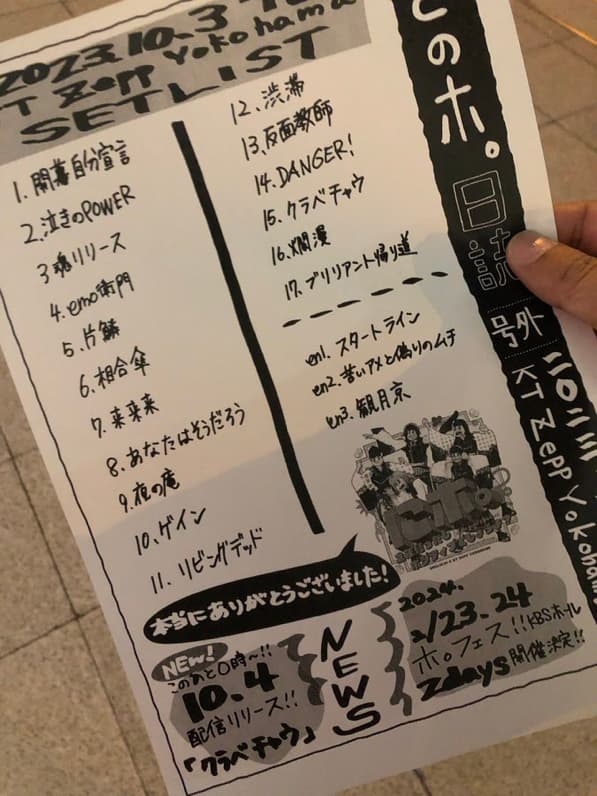 2023.10.3
KT Zepp Yokohama
SETLIST
1. 開幕自分宣言
2. 泣きのPOWER
3 魂リリース
4. emo衛門
5. 片鱗
6. 相合傘
7. 来来来
8. あなたはそうだろう
9. 夜の庵
10. ゲイン
11. リビングデッド
12. 渋滞
13. 反面教師
14. DANGER!
15. クラベチャウ
16. 爛漫
17. ブリリアント帰り道
en1. スタートライン
en2. 苦いアメと偽りのムチ
en3. 観月京
本当にありがとうございました!
NEW!
このあと0時〜!!
10.4
配信リリース!!
「クラベチャウ」
NEWS
2024.
2/23.24
ホ。フェス!! KBSホール
2days 開催決定!!
とのホ。
日誌
号外
二〇二三
KT Zepp Yokohama